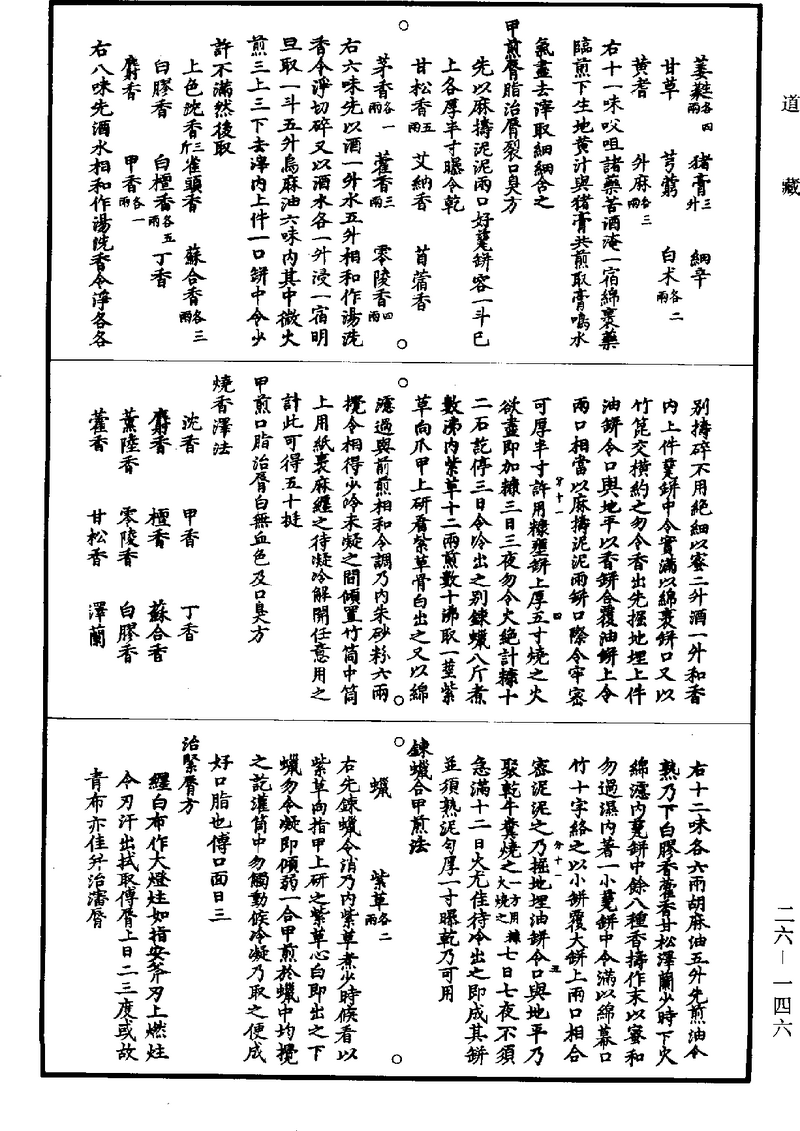 道藏
萎蕤各四兩 猪膏三升 細辛
甘草 芎藭 白朮各二兩
黄耆 升麻各三兩
右十一味㕮咀諸藥苦酒淹一宿綿裹藥
臨煎下生地黄汁與猪膏共煎取膏鳴水
氣盡去滓取細細含之
甲煎脣脂治脣裂口臭方
先以麻擣泥泥兩口好甕缾容一斗已
上各厚半寸曝令乾
甘松香五兩 艾納香 苜蓿香
茅香各一兩 藿香三兩 零陵香四兩
右六味先以酒一升水五升相和作湯洗
香令淨切碎又以酒水各一升浸一宿明
旦取一斗五升烏麻油六味内其中微火
煎三上三下去滓内上件一口缾中令少
許不滿然後取
上色沈香三斤 雀頭香 蘇合香各三兩
白膠香 白檀香各五兩 丁香
麝香 甲香各一兩
右八味先酒水相和作湯洗香令淨各各
別擣碎不用絶細以蜜二升酒一升和香
内上件甕缾中令實滿以綿裹缾口又以
竹篦交横約之勿令香出先掘地埋上件
油缾令口與地平以香缾合覆油缾上令
兩口相當以麻擣泥泥兩缾口際令牢密
可厚半寸許用糠壅缾上厚五寸燒之火
欲盡即加糠三日三夜勿令火絶計糠十
二石訖停三日令冷出之别鍊蠟八斤煮
數沸内紫草十二兩煎數十沸取一莖紫
草向爪甲上研看紫草骨白出之又以綿
濾過與前煎相和令調乃内朱砂粉六兩
攪令相得少冷未凝之間傾置竹筒中筒
上用紙裹麻纏之待凝冷解開任意用之
計此可得五十挺
甲煎口脂治脣白無血色及口臭方
燒香澤法
沈香 甲香 丁香
麝香 檀香 蘇合香
薰陸香 零陵香 白膠香
藿香 甘松香 澤蘭
右十二味各六兩胡麻油五升先煎油令
熟乃下白膠香藿香甘松澤蘭少時下火
綿濾内甕缾中餘八種香擣作末以蜜和
勿過濕内著一小甕缾中令滿以綿幕口
竹十字絡之以小缾覆大缾上兩口相合
密泥泥之乃掘地埋油缾令口與地平乃
聚乾牛糞燒之一方用糠火燒之七日七夜不須
急滿十二日火尤佳待冷出之即成其缾
並須熟泥勻厚一寸曝乾乃可用
鍊蠟合甲煎法
蠟 紫草各二兩
右先鍊蠟令消乃内紫草煮少時候看以
紫草向指甲上研之紫草心白即出之下
蠟勿令凝即傾弱一合甲煎於蠟中均攪
之訖灌筒中勿觸動候冷凝乃取之便成
好口脂也傅口面日三
治緊脣方
纏白布作大燈炷如指安斧刃上燃炷
令刃汗出拭取傅脣上日二三度或故
青布亦佳并治瀋脣
二六—一四六